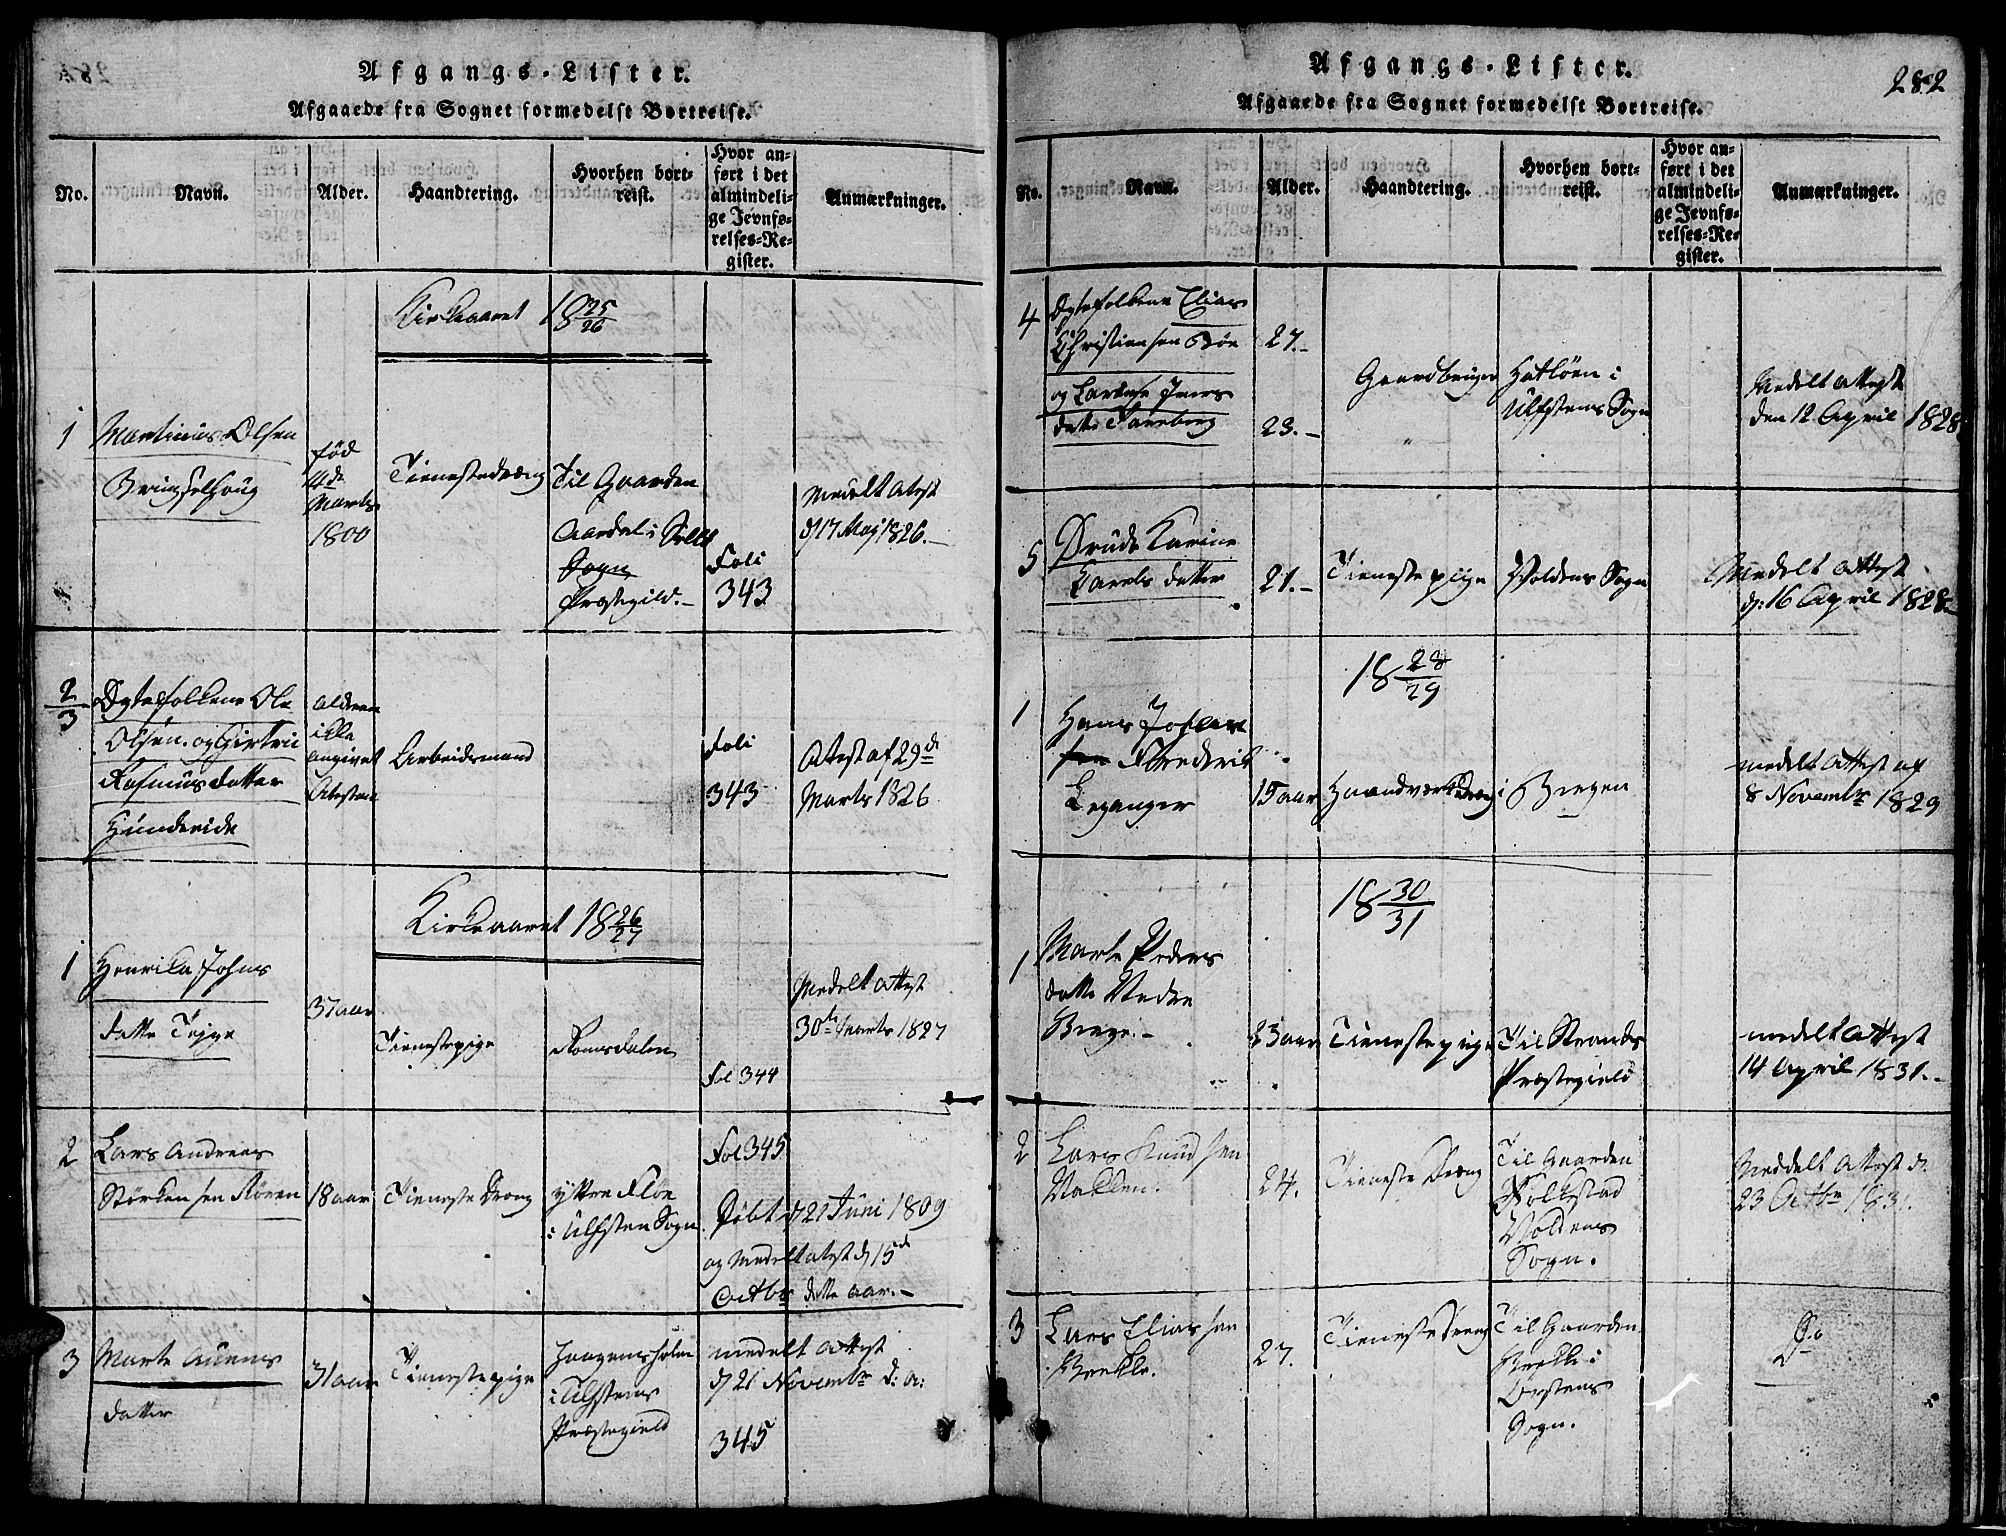 Afgangs-Lister.
Afgaaede fra Sognet formedelst Bortreise.
No.
Navn.
Alder.
Haandtering.
Hvorhen bort-
reist.
Hvor an-
ført i det
almindeli-
ge Jevnfø-
relses-Re-
gister.
Anmærkninger.
Kirkeaaret 18 25/26
1
Martinus Olsen
Bringselhoug
fød
4de
Marts
1800
Tienestedreng
Til Gaarden
Aardal i Selløe
Sogn
Præstegield.-
Foli
343
Medelt Atest
d 17 Maj 1826.-
2/3
Ægtefolkene Ole
Olsen og Girtrü
Rasmusdatter
Hunderide
Alderen
ikke
angivet
Atesten
Arbeidsmand
Foli
343
Atest af 29de
Marts 1826
Kirkeaaret 18 26/27
1
Henrika Johns
datter
37 aar
Tienestepige
Romsdalen
Fol 344
Medelt Attest
30te Marts 1827
2
Lars Andreas
Störkersen Rören
18 aar
Tieneste Dreng
ÿttre Fløe
i Ulfsten Sogn
Fol 345
Døbt d 21 Juni 1809
og Medelt atest d 15de
Octbr dette aar.-
3
Marte
datter
31 aar
Tienestepige
Haagensholm
i Ulfstens
Præstegield
medelt Attest
d 21 Novembr d: a:
345
Afgangs-Lister.
282
Afgaaede fra Sognet formedelst Bortreise.
No.
Navn.
Alder.
Haandtering.
Hvorhen bort-
reist.
Hvor an-
ført i det
almindeli-
ge Jevnfø-
relses-Re-
gister.
Anmærkninger.
4
Ægtefolkene Elias
Christiansen Bøe
og Larense Ivers
datter
27.-
23.-
Gaardbruger
Hatløen i
Ulfstens Sogn
Medelt Attest
den 12 April 1828
5
Drude Karine
Larels datter
21.-
Tienestepige
Voldens Sogn
Medelt Attest
d: 16 April 1828
18 28/29
1
Hans
sen Frederik
Leganger
15 aar
Haandværksdreng
i Bergen
medelt Attest af
8 Novembr 1829
18 30/31
1
Marte Peders
datter Vedre
Berge.-
23 aar
Tienestepige
Til Strands
Præstegield
medelt Attest
14 April 1831.-
2
Lars Knudsen
Vatlen.
24.
Tieneste Dreng
Til Gaarden
Folkestad
Voldens
Sogn.
Meddelt Attest d.
23 Octbr 1831.
3
Lars Eliassen
Brekke.
27.
Tienestedreng
Til Gaarden
Brekke i
Ørstens
Sogn.
Do